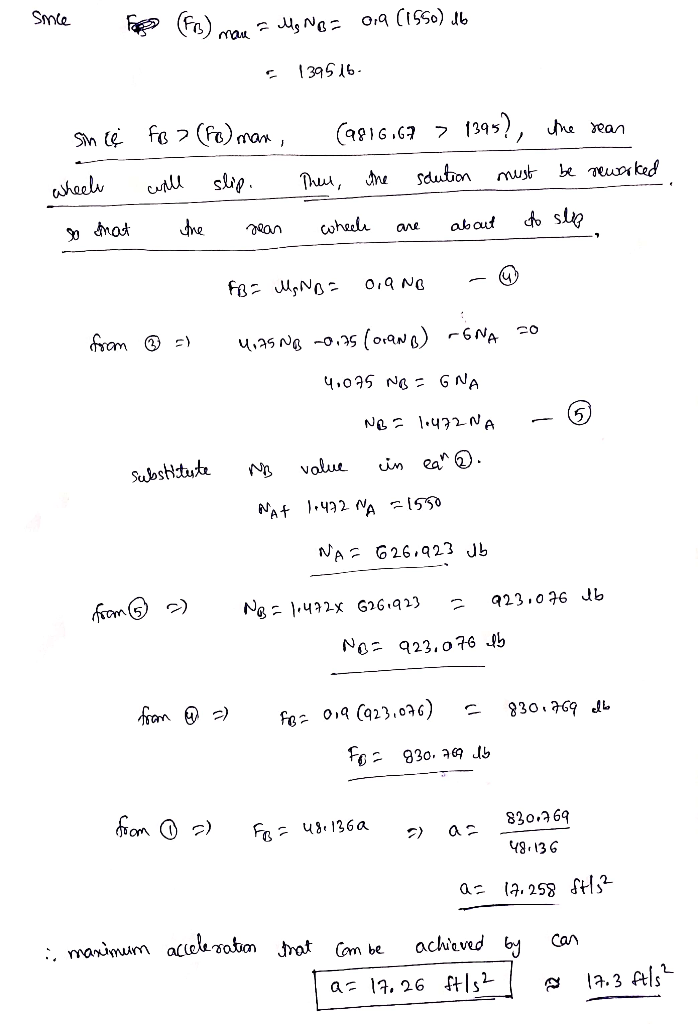 Since (FB) max = μs NB = 0.9 (1550) lb
= 1395 lb.
Since FB > (FB) max, (9816.67 > 1395), the rear
wheels will slip. Then, the solution must be reworked
so that the rear wheels are about to slip,
FB = μs NB = 0.9 NB — ④
from ③ ⇒ 4.75 NB - 0.75 (0.9 NB) - 6 NA = 0
4.075 NB = 6 NA
NB = 1.472 NA — ⑤
substitute NB value in eqn ②.
NA + 1.472 NA = 1550
NA = 626.923 lb
from ⑤ ⇒ NB = 1.472 x 626.923 = 923.076 lb
NB = 923.076 lb
from ④ ⇒ FB = 0.9 (923.076) = 830.769 lb
FB = 830.769 lb
from ① ⇒ FB = 48.136a ⇒ a = 830.769
48.136
a = 17.258 ft/s²
∴ maximum acceleration that can be achieved by car
a = 17.26 ft/s² ≈ 17.3 ft/s²